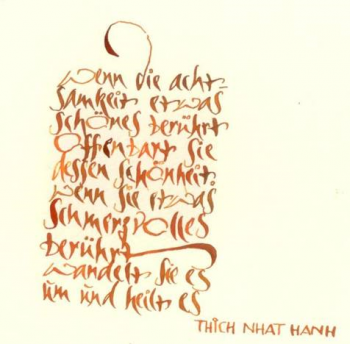 wenn die acht-
samkeit etwas
schönes berührt
offenbart sie
dessen schönheit.
wenn sie etwas
schmerzvolles
berührt
wandelt sie es
um und heilt es
THICH NHAT HANH